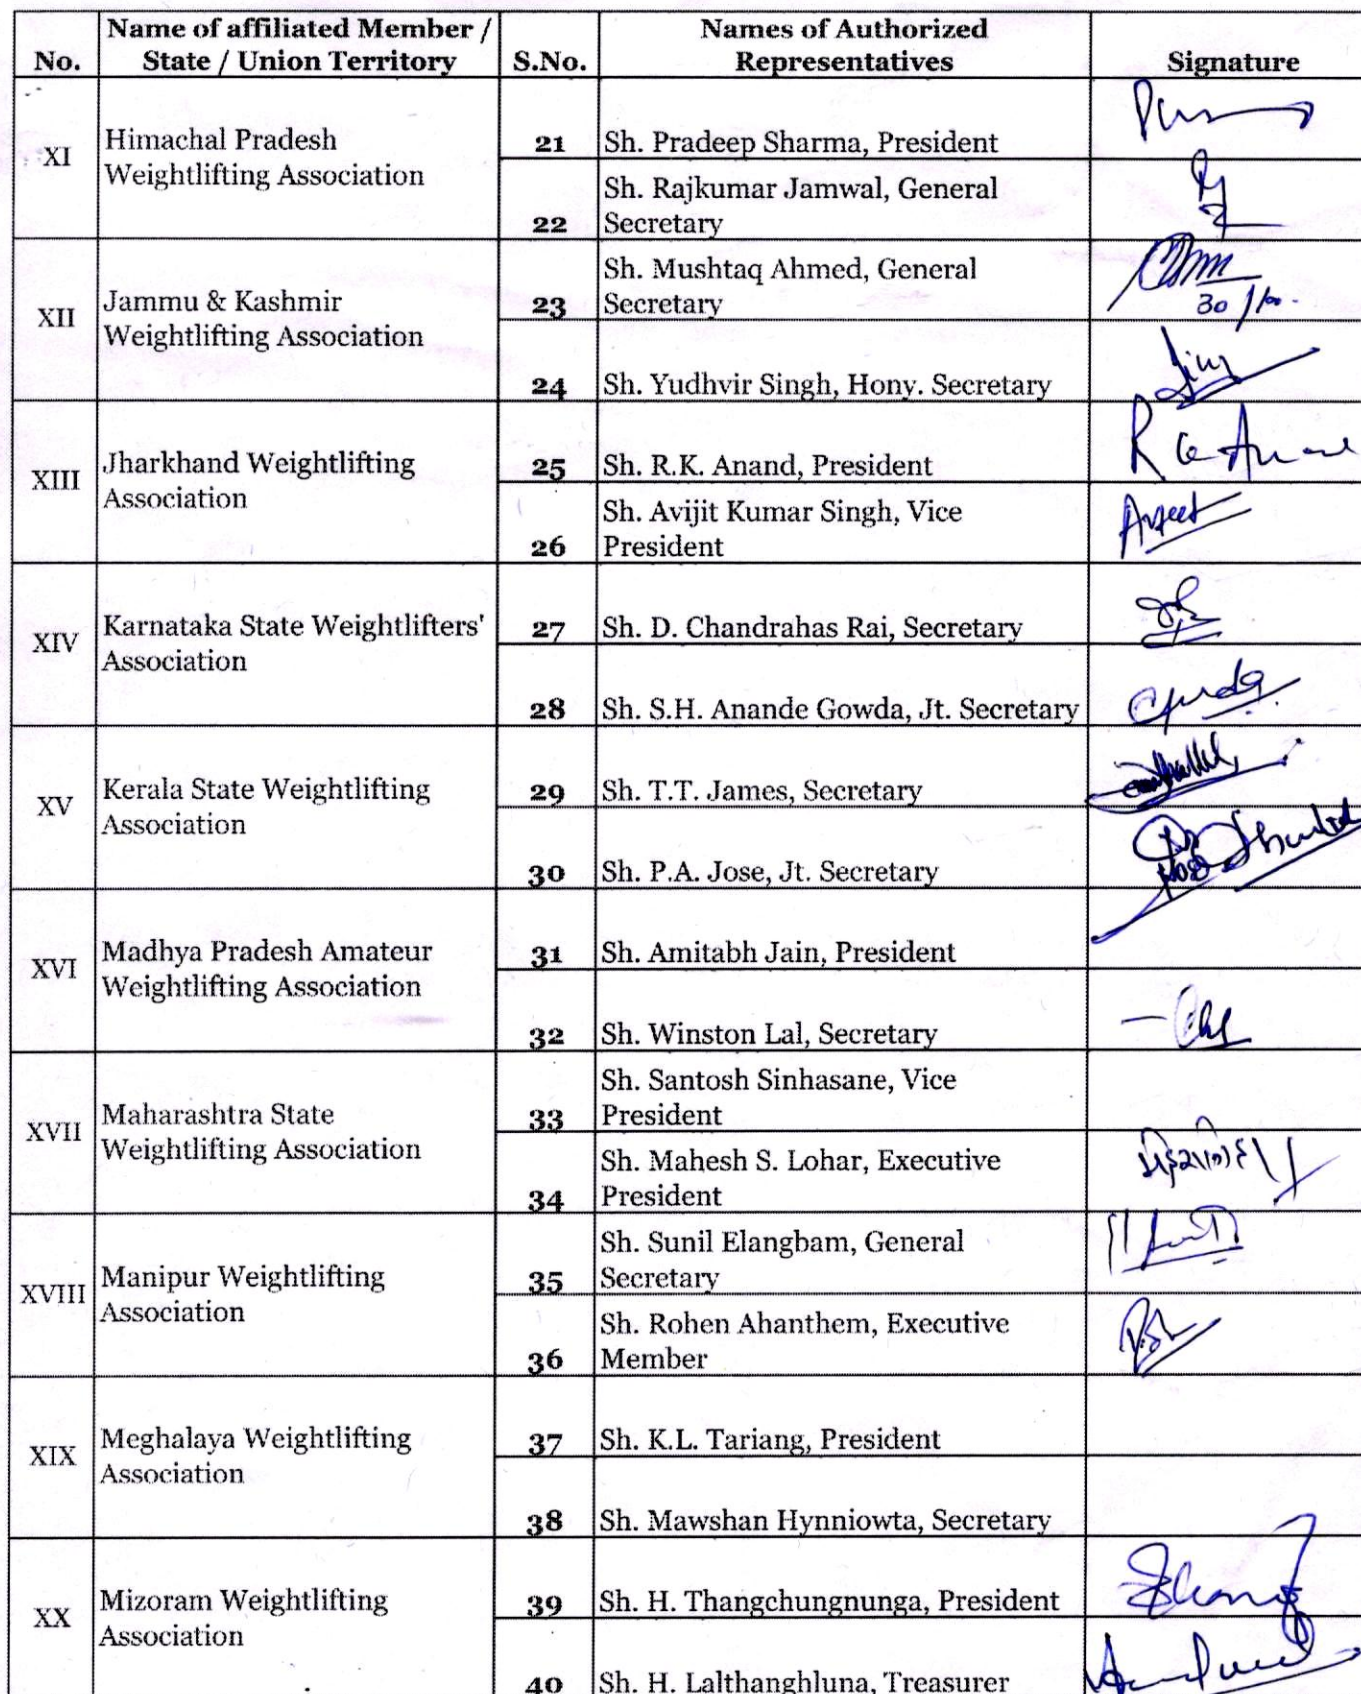 No.
Name of affiliated Member /
State / Union Territory
S.No.
Names of Authorized
Representatives
Signature
XI
Himachal Pradesh
Weightlifting Association
21
Sh. Pradeep Sharma, President
22
Sh. Rajkumar Jamwal, General
Secretary
XII
Jammu & Kashmir
Weightlifting Association
23
Sh. Mushtaq Ahmed, General
Secretary
24
Sh. Yudhvir Singh, Hony. Secretary
XIII
Jharkhand Weightlifting
Association
25
Sh. R.K. Anand, President
26
Sh. Avijit Kumar Singh, Vice
President
XIV
Karnataka State Weightlifters'
Association
27
Sh. D. Chandrahas Rai, Secretary
28
Sh. S.H. Anande Gowda, Jt. Secretary
XV
Kerala State Weightlifting
Association
29
Sh. T.T. James, Secretary
30
Sh. P.A. Jose, Jt. Secretary
XVI
Madhya Pradesh Amateur
Weightlifting Association
31
Sh. Amitabh Jain, President
32
Sh. Winston Lal, Secretary
XVII
Maharashtra State
Weightlifting Association
33
Sh. Santosh Sinhasane, Vice
President
34
Sh. Mahesh S. Lohar, Executive
President
XVIII
Manipur Weightlifting
Association
35
Sh. Sunil Elangbam, General
Secretary
36
Sh. Rohen Ahanthem, Executive
Member
XIX
Meghalaya Weightlifting
Association
37
Sh. K.L. Tariang, President
38
Sh. Mawshan Hynniowta, Secretary
XX
Mizoram Weightlifting
Association
39
Sh. H. Thangchungnunga, President
40
Sh. H. Lalthanghluna, Treasurer